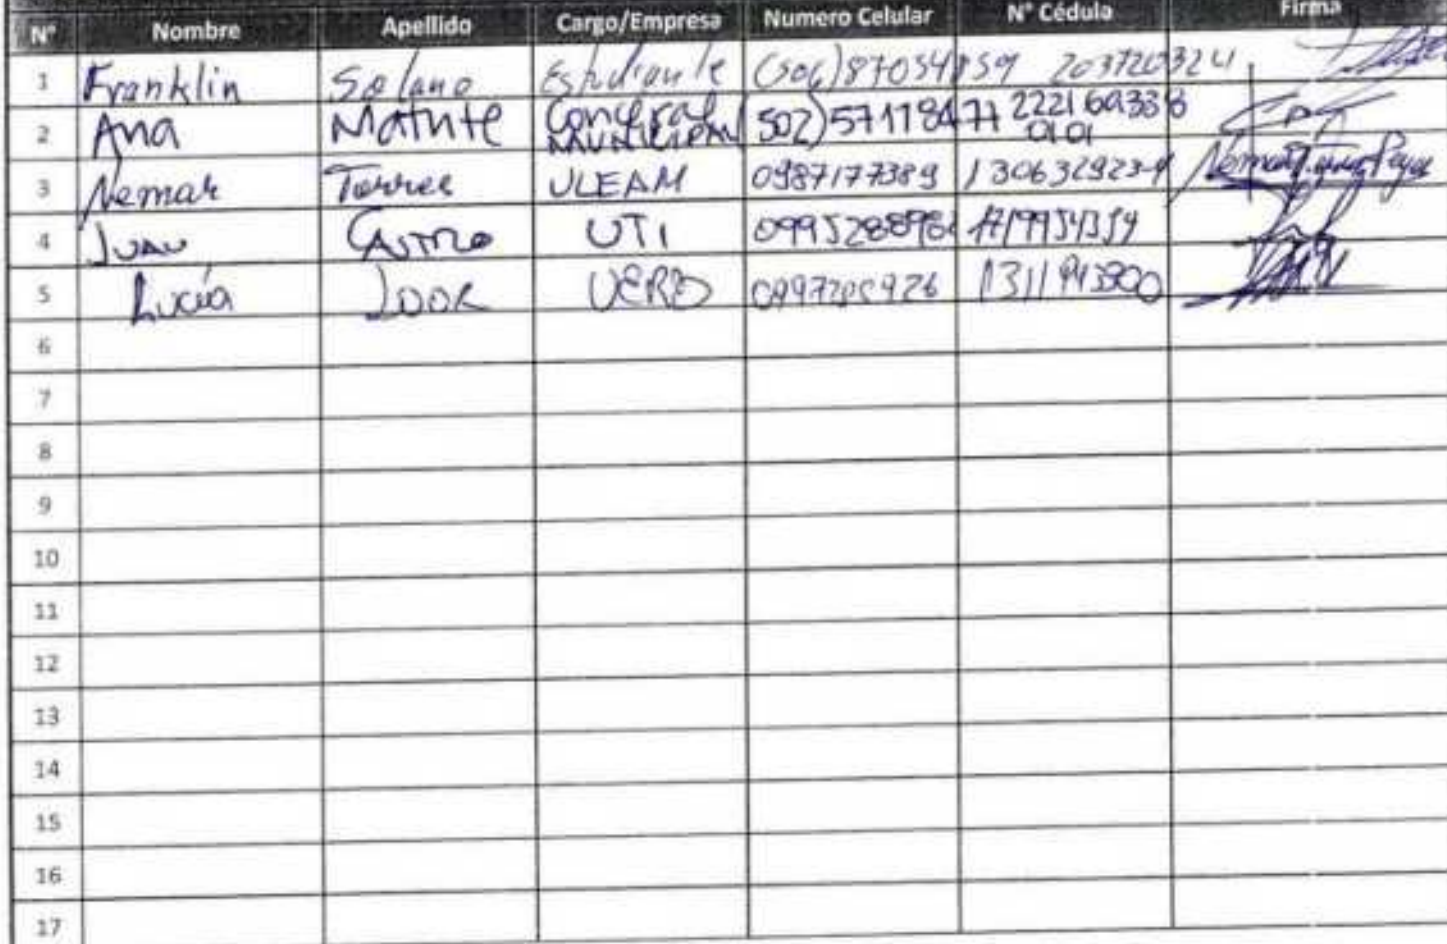 N° Nombre Apellido Cargo/Empresa Numero Celular N° Cédula Firma
1 Franklin Solano Estudiante (506)87054859 203720324
2 Ana Matute Concejal MUNICIPAL 502)57117847 222169338 0101
3 Nemar Torres ULEAM 0987177389 130632923-4
4 JUAN CASTRO UTI 1719954354
5 Lucía LOOR
6
7
8
9
10
11
12
13
14
15
16
17